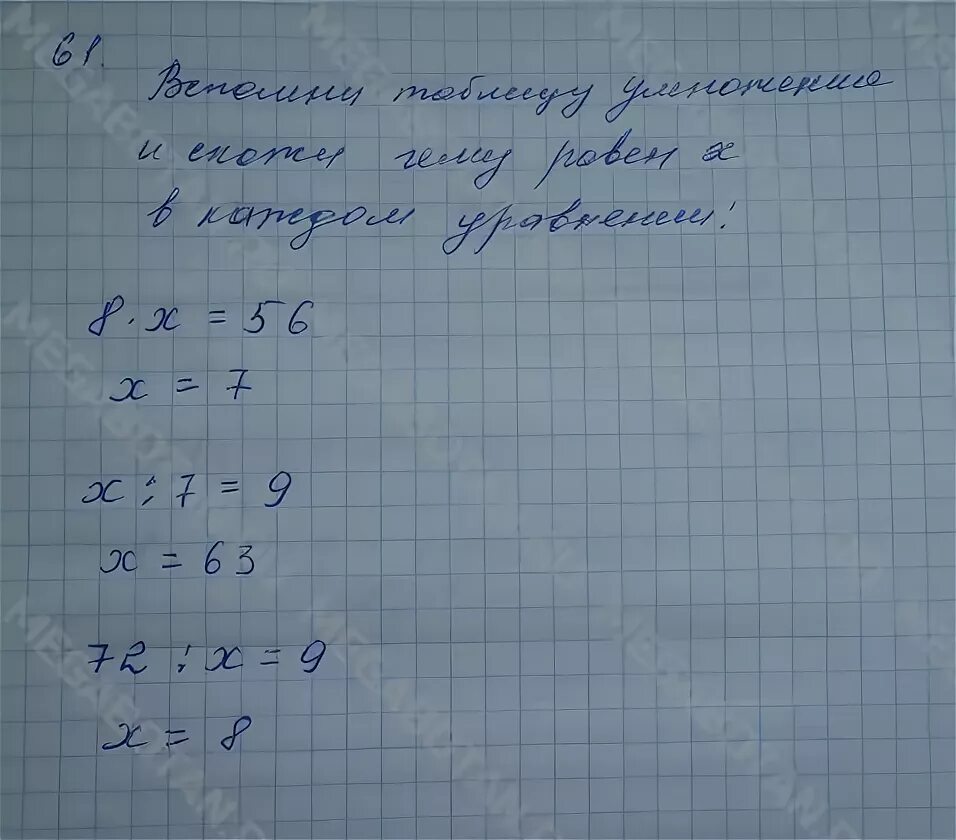 61.
Вспомни таблицу умножения
и скажи чему равен x
в каждом уравнении:
8 · x = 56
x = 7
x : 7 = 9
x = 63
72 : x = 9
x = 8